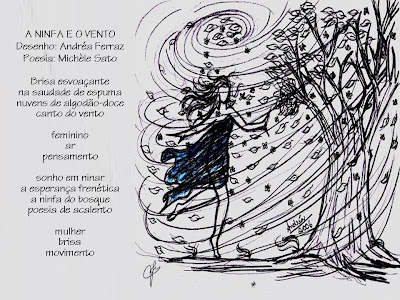 A NINFA E O VENTO
Desenho: Andréa Ferraz
Poesia: Michèle Sato
Brisa esvoaçante
na saudade de espuma
nuvens de algodão-doce
canto do vento
feminino
ar
pensamento
sonho em ninar
a esperança frenética
a ninfa do bosque
poesia de acalerto
mulher
brisa
movimento